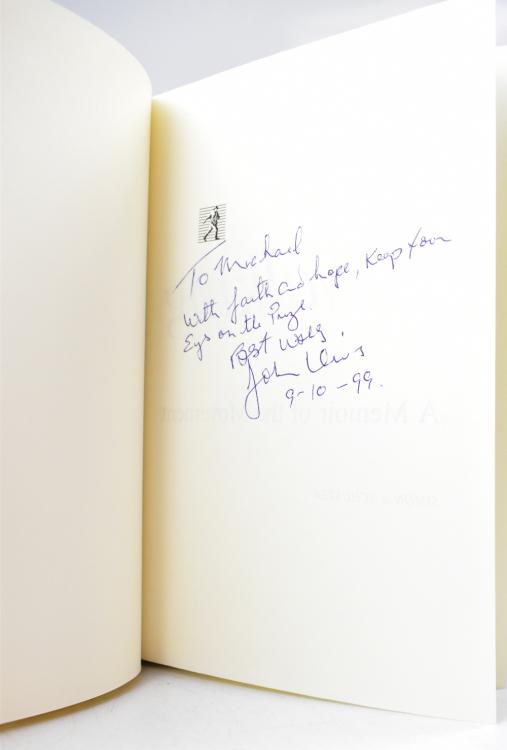 To Michael
With faith and hope, Keep Your
Eys on the Prize.
Best Wishes,
John Lewis
9-10-99.
A Memoir of the Movement
SIMON & SCHUSTER